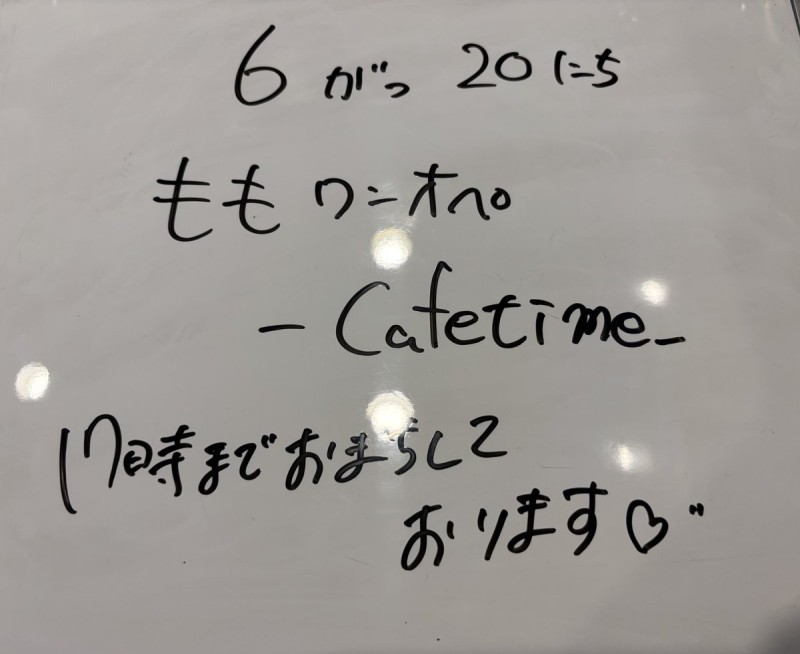 6がつ 20にち
ももワンオペ
- Cafetime -
17時までおまちして
おります♡"